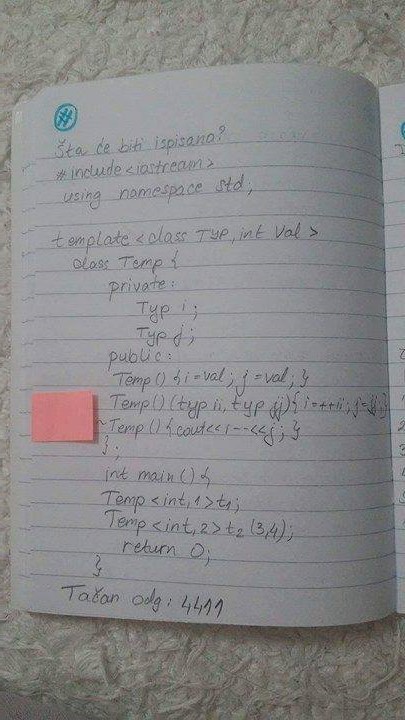 #
Šta će biti ispisano?
#include<iostream>
using namespace std;
template <class Typ, int Val>
class Temp {
private:
Typ i;
Typ j;
public:
Temp() {i=val; j=val;}
Temp()(typ ii, typ jj){i=++ii; j=jj;}
~Temp() {cout<<i--<<j; }
};
int main() {
Temp<int,1>t1;
Temp<int,2>t2(3,4);
return 0;
}
Tačan odg: 4411